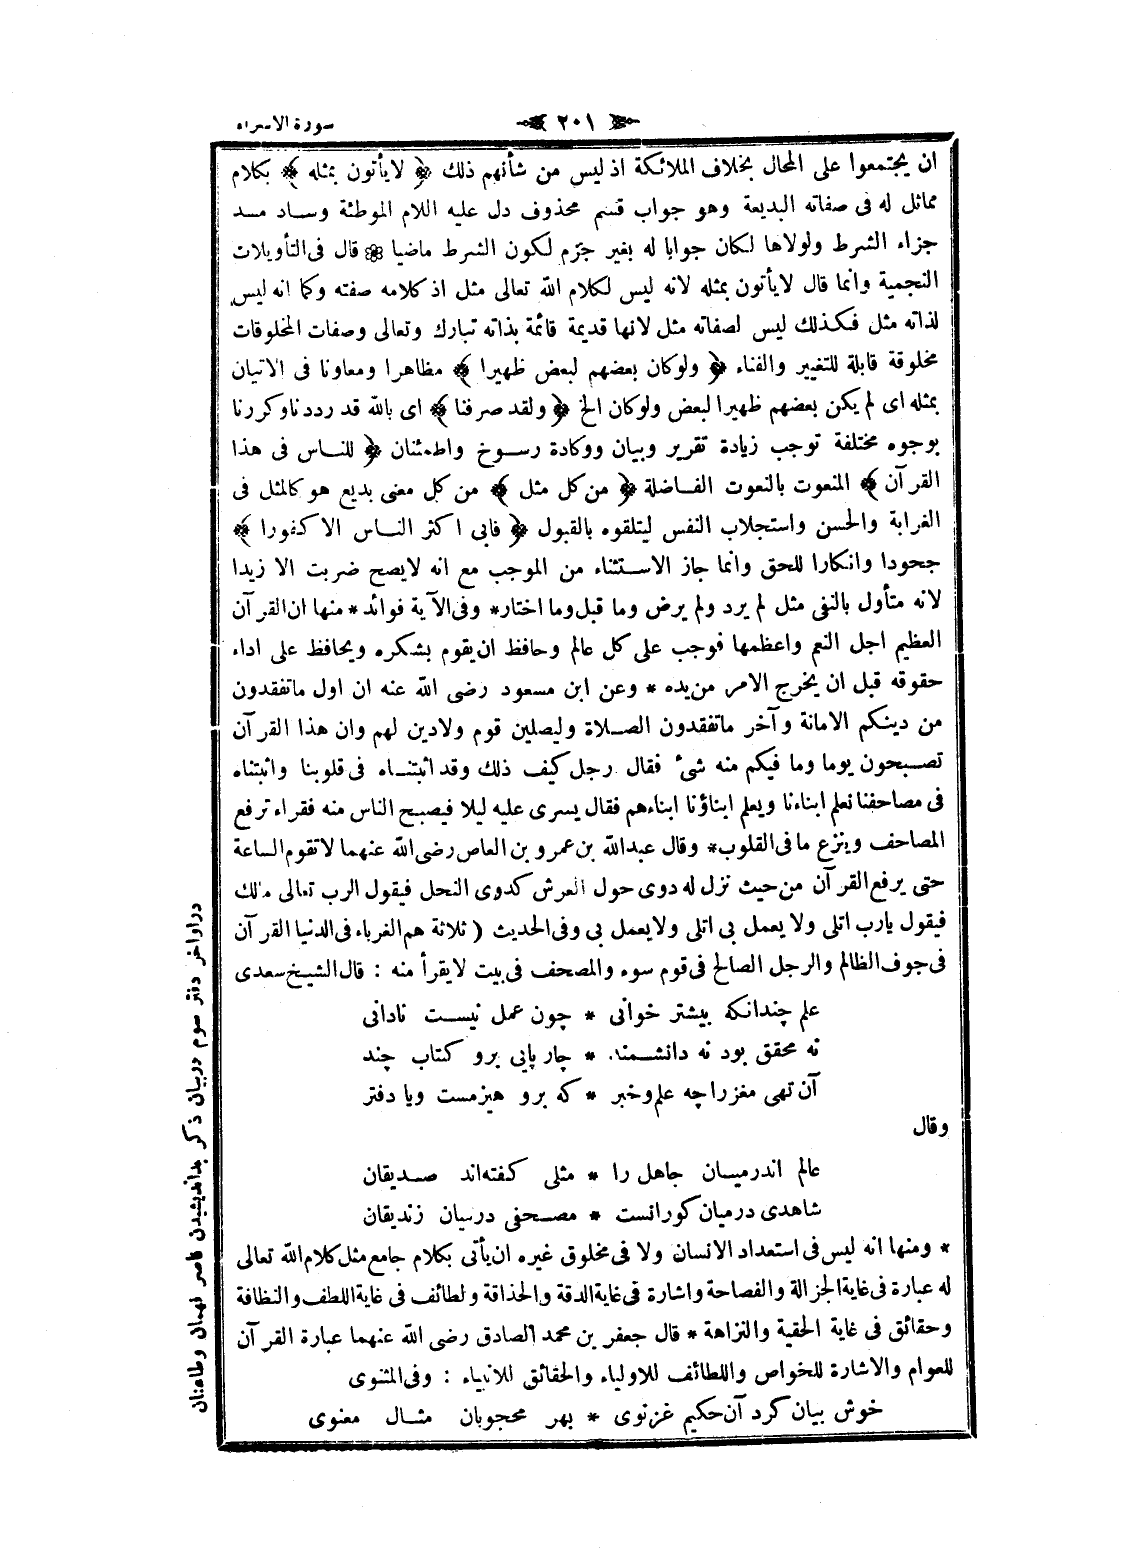 سورة الاسراء
﴿ ٢٠١ ﴾
ان يجتمعوا على المحال بخلاف الملائكة اذ ليس من شأنهم ذلك ﴿ لايأتون بمثله ﴾ بكلام
مماثل له فى صفاته البديعة وهو جواب قسم محذوف دل عليه اللام الموطئة وساد مسد
جزاء الشرط ولولاها لكان جوابا له بغير جزم لكون الشرط ماضيا ❁ قال فى التأويلات
النجمية وانما قال لايأتون بمثله لانه ليس لكلام الله تعالى مثل اذ كلامه صفته وكما انه ليس
لذاته مثل فكذلك ليس لصفاته مثل لانها قديمة قائمة بذاته تبارك وتعالى وصفات المخلوقات
مخلوقة قابلة للتغيير والفناء ﴿ ولوكان بعضهم لبعض ظهيرا ﴾ مظاهرا ومعاونا فى الاتيان
بمثله اى لم يكن بعضهم ظهيرا لبعض ولوكان الخ ﴿ ولقد صرفنا ﴾ اى بالله قد رددنا وكررنا
بوجوه مختلفة توجب زيادة تقرير وبيان ووكادة رسوخ واطمئنان ﴿ للناس فى هذا
القرآن ﴾ المنعوت بالنعوت الفاضلة ﴿ من كل مثل ﴾ من كل معنى بديع هو كالمثل فى
الغرابة والحسن واستجلاب النفس ليتلقوه بالقبول ﴿ فابى اكثر الناس الا كفورا ﴾
جحودا وانكارا للحق وانما جاز الاستثناء من الموجب مع انه لايصح ضربت الا زيدا
لانه متأول بالنفى مثل لم يرد ولم يرض وما قبل وما اختار* وفى الآية فوائد* منها ان القرآن
العظيم اجل النعم واعظمها فوجب على كل عالم وحافظ ان يقوم بشكره ويحافظ على اداء
حقوقه قبل ان يخرج الامر من يده * وعن ابن مسعود رضى الله عنه ان اول ماتفقدون
من دينكم الامانة وآخر ماتفقدون الصلاة وليصلين قوم ولادين لهم وان هذا القرآن
تصبحون يوما وما فيكم منه شىء فقال رجل كيف ذلك وقد اثبتناه فى قلوبنا واثبتناه
فى مصاحفنا نعلم ابناءنا ويعلم ابناؤنا ابناءهم فقال يسرى عليه ليلا فيصبح الناس منه فقراء ترفع
المصاحف وينزع ما فى القلوب* وقال عبدالله بن عمرو بن العاص رضى الله عنهما لاتقوم الساعة
حتى يرفع القرآن من حيث نزل له دوى حول العرش كدوى النحل فيقول الرب تعالى مالك
فيقول يارب اتلى ولا يعمل بى اتلى ولايعمل بى وفى الحديث ( ثلاثة هم الغرباء فى الدنيا القرآن
فى جوف الظالم والرجل الصالح فى قوم سوء والمصحف فى بيت لايقرأ منه : قال الشيخ سعدى
علم چندانكه بيشتر خوانى * چون عمل نيست نادانى
نه محقق بود نه دانشمند * چار پايى برو كتاب چند
آن تهى مغز را چه علم وخبر * كه برو هيزمست ويا دفتر
وقال
عالم اندرميان جاهل را * مثلى كفته‌اند صديقان
شاهدى درميان كورانست * مصحفى درميان زنديقان
* ومنها انه ليس فى استعداد الانسان ولا فى مخلوق غيره ان يأتى بكلام جامع مثل كلام الله تعالى
له عبارة فى غاية الجزالة والفصاحة واشارة فى غاية الدقة والحذاقة ولطائف فى غاية اللطف والنظافة
وحقائق فى غاية الحقية والنزاهة * قال جعفر بن محمد الصادق رضى الله عنهما عبارة القرآن
للعوام والاشارة للخواص واللطائف للاولياء والحقائق للانبياء : وفى المثنوى
خوش بيان كرد آن حكيم غزنوى * بهر محجوبان مثال معنوى
دراواخر دفتر سوم دربيان ذكر بدانديشيدن قاصر فهمان وطاعنان